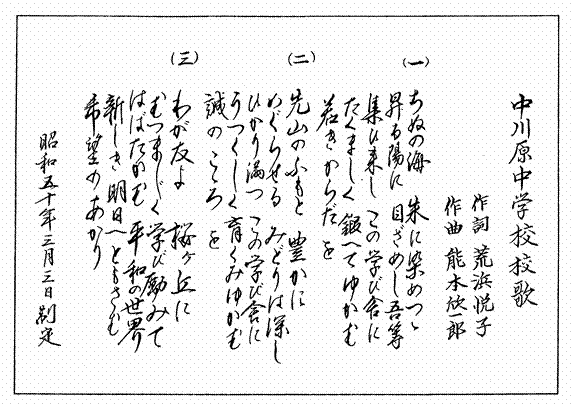 中川原中学校校歌
作詞 荒浜悦子
作曲 能木欣一郎
(一)
ちぬの海 朱に染めつゝ
昇る陽に 目ざめし吾等
集ひ来し この学び舎に
たくましく 鍛へてゆかむ
若きからだを
(二)
先山のふもと 豊かに
めぐらせる みどりは深し
ひかり満つ この学び舎に
うつくしく 育くみゆかむ
誠のこころを
(三)
わが友よ 桜ヶ丘に
むつまじく 学び励みて
はばたかむ 平和の世界
新しき明日へともさむ
希望のあかり
昭和五十年三月三日制定